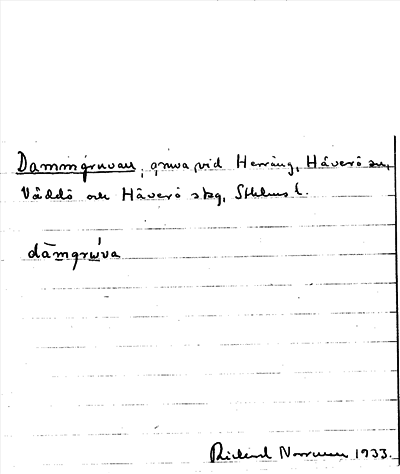 Dammgruvan, gruva vid Herräng, Häverö sn,
Väddö och Häverö skg, Sthlms l.
dàmgrwva
Rickard Norrman 1933.